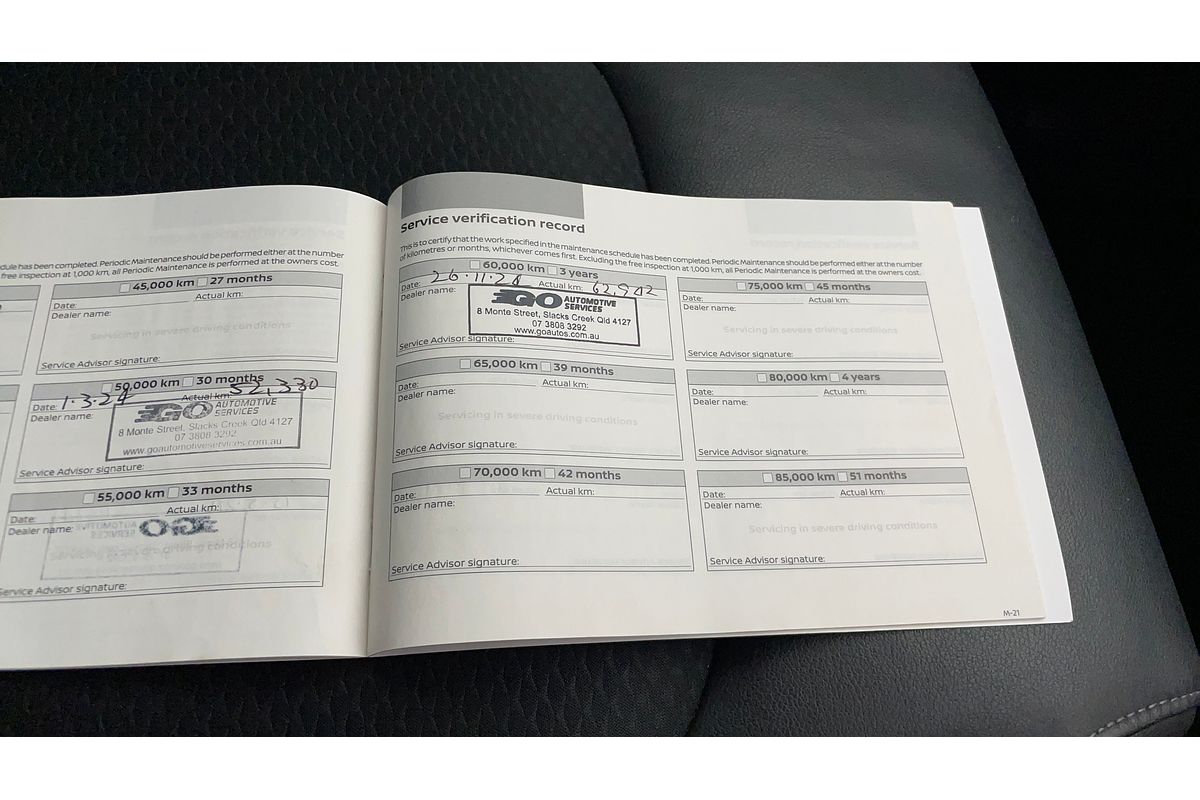 dule has been completed. Periodic Maintenance should be performed either at the number
free inspection at 1,000 km, all Periodic Maintenance is performed at the owners cost.
45,000 km 27 months
Date: Actual km:
Dealer name:
Servicing in severe driving conditions
Service Advisor signature:
50,000 km 30 months
Date: 1.3.24 Actual km: 52,330
Dealer name:
GO AUTOMOTIVE
SERVICES
8 Monte Street, Slacks Creek Qld 4127
07 3808 3292
www.goautomotiveservices.com.au
Service Advisor signature:
55,000 km 33 months
Date: Actual km:
Dealer name:
Servicing in severe driving conditions
Service Advisor signature:
Service verification record
This is to certify that the work specified in the maintenance schedule has been completed. Periodic Maintenance should be performed either at the number
of kilometres or months, whichever comes first. Excluding the free inspection at 1,000 km, all Periodic Maintenance is performed at the owners cost.
60,000 km 3 years
Date: 26.11.24 Actual km: 62,942
Dealer name:
GO AUTOMOTIVE
SERVICES
8 Monte Street, Slacks Creek Qld 4127
07 3808 3292
www.goautos.com.au
Service Advisor signature:
65,000 km 39 months
Date: Actual km:
Dealer name:
Servicing in severe driving conditions
Service Advisor signature:
70,000 km 42 months
Date: Actual km:
Dealer name:
Service Advisor signature:
75,000 km 45 months
Date: Actual km:
Dealer name:
Servicing in severe driving conditions
Service Advisor signature:
80,000 km 4 years
Date: Actual km:
Dealer name:
Service Advisor signature:
85,000 km 51 months
Date: Actual km:
Dealer name:
Servicing in severe driving conditions
Service Advisor signature:
M-21